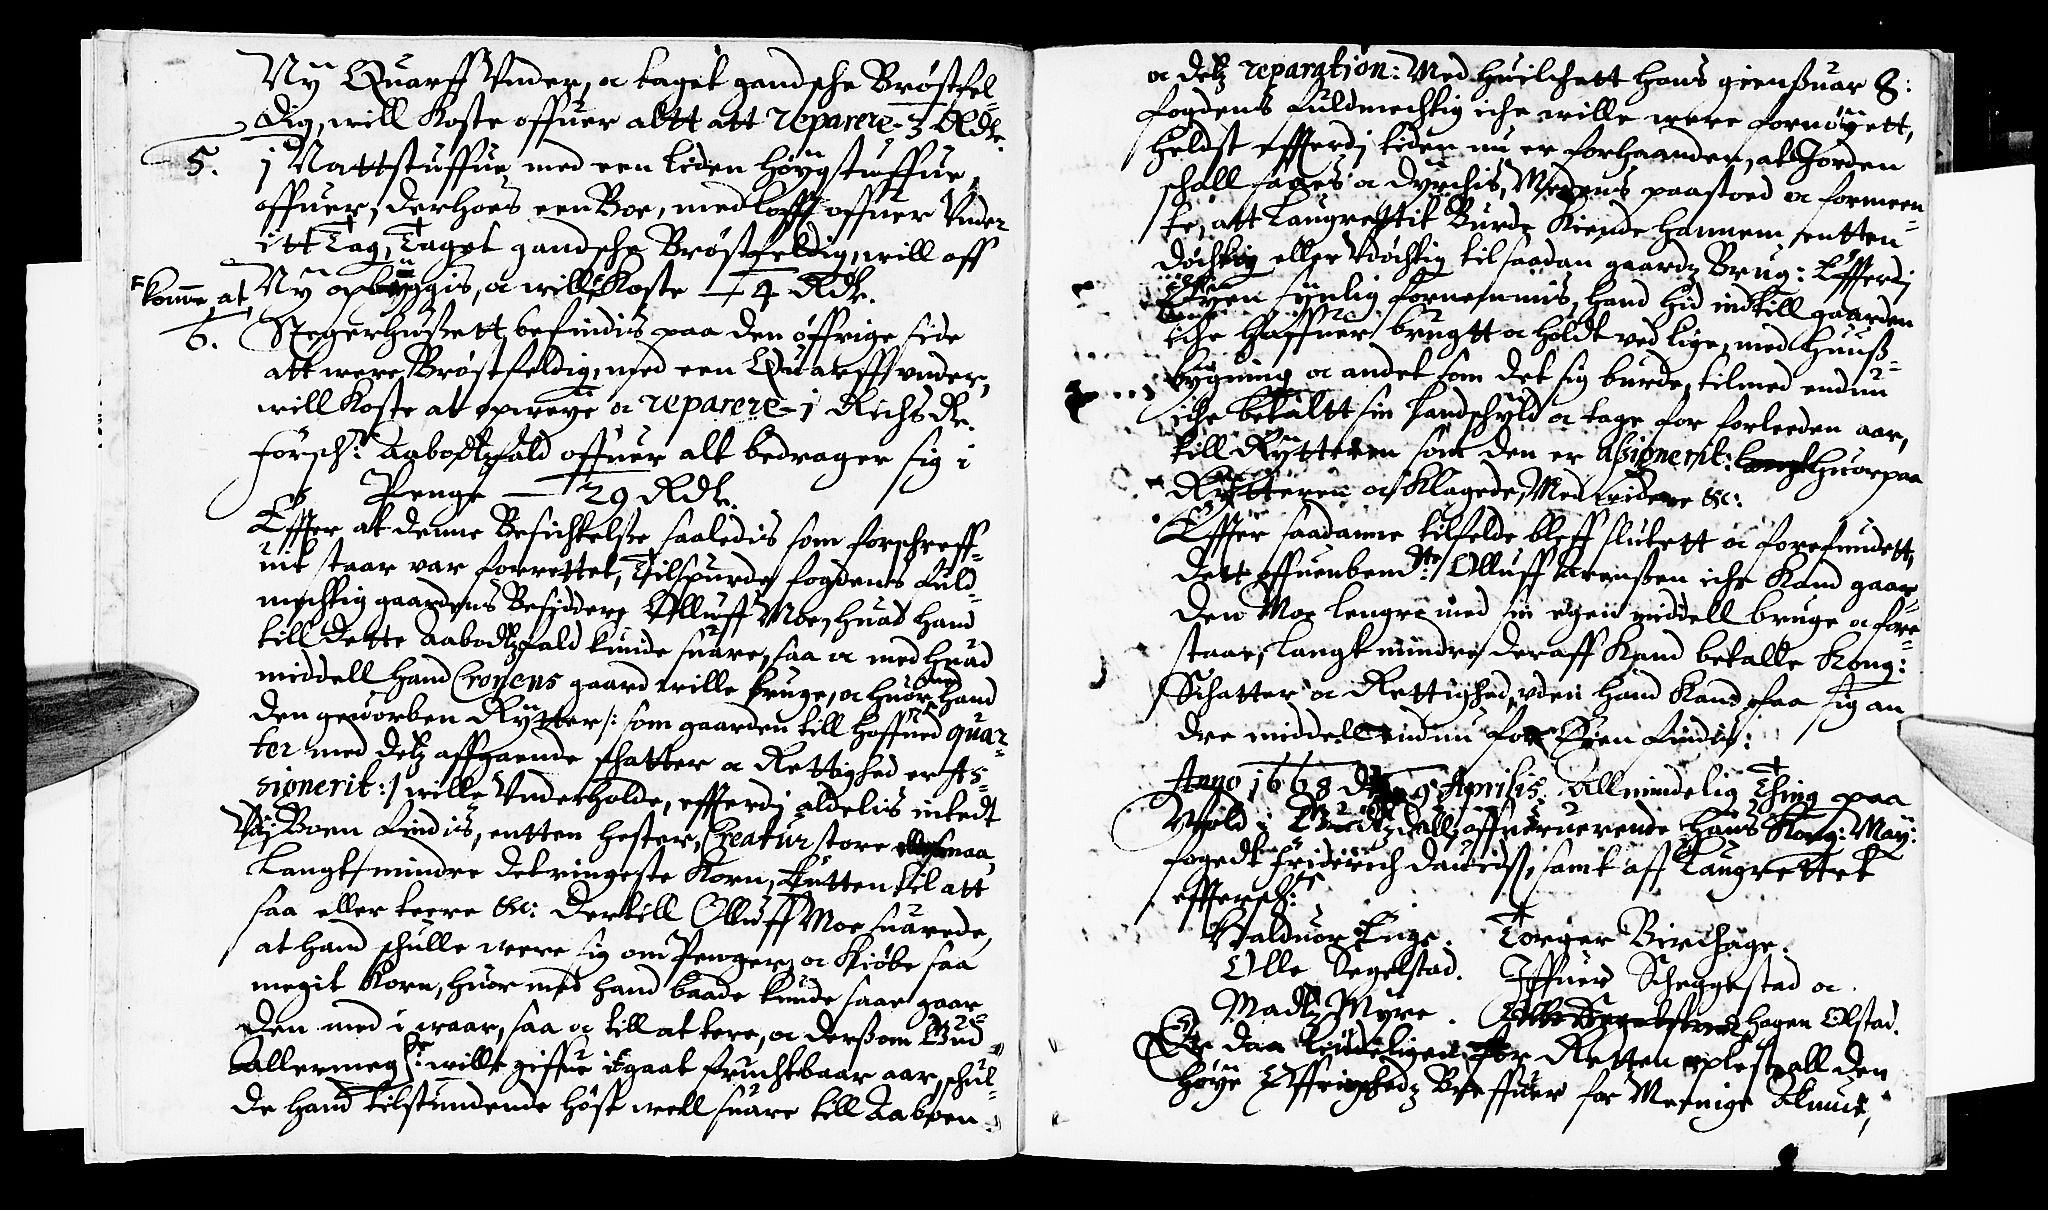 Ny Quarff Vnder, oc taget gandsche Brøstfel-
dig, will Koste offuer altt att reparere - 3 Rdr.
5. j Nattstuffue, med een liden høygstuffue
offuer, derhoes een Boe, med lofft offuer Vnder
itt Tag, Taget gandsche Brøstfeldig, will aff
Ny opbyggis, oc will Koste — 4 Rdr.
komme at
6. Stegerhußett, befindis paa den øffrige side
att were Brøstfeldig, med een Quarff vnder,
will Koste at opweye oc reparere - 1 Richsdr.
Forsch: Aabodtzfald offuer alt bedrager sig i
Penge — 29 Rdr.
Effter at denne Besichtelße saaledis som forschreff-
uit staar var forrettet, Tilspurde fogdens Fuld-
mechtig gaardens Besiddere Olluff Moe, huad hand
till dette Aabodtzfald kunde suare, saa oc med huad
middell hand Cronens gaard wille bruge, oc huor med hand
den geworben Rytter /: som gaarden till hoffued quar-
ter med detz affgaaende schatter oc Rettighed er As-
signerit :/ wille Vnderholde, effterdj aldelis intedt
Paa Boen findis, entten hester, Creatur store eller smaa,
Langt mindre det ringeste Korn, Entten til att
saa eller teere &c: dertill Olluff Moe suarede,
at hand schulle were sig om Penger, oc Kiøbe saa
megit Korn, huor med hand baade kunde saae gaar-
den med i waar, saa oc till at tere, oc dersom Gud
Allermegste: wille giffue it gaat fruchtbaar aar, schul-
de hand tilstundende høst well suare till Aaboen
oc detz reparation: Med huilchett hans giensuar S:
fogdens fuldmechtig iche wille were fornøyett,
heldst effterdj tiden nu er forhaanden, at Jorden
schall saaes oc dyrchis, Medens paastoed oc formeen-
te, att Laugrettit Burde Kiende hannem entten
døchtig eller Vdøchtig til saadan gaardz Brug: Effterdj
Øyen siunlig fornemmis, hand hid indtill gaarden
iche haffuer brugtt oc holdt ved lige, med huuß-
bygning oc andet som det sig burde, tilmed endnu
iche betaltt sin Landschyld oc tage for forleeden aar,
till Rytteren som den er Assignerit: huorpaa
Rytteren oc Klagede, Med widere &c:
Effter saadanne tilfelde bleff slutett oc forefundett,
dett offuenbemte: Olluff Arenßen iche Kand gaar-
den Moe lengre med sin egen middell bruge oc fore-
staae, langt mindre deraff Kand betalle Kong:
Schatter oc Rettighed, vden hand Kand faa sig an
dre middell endnu for Øyen findis:
Anno 1668 d. 9 Aprilis. Allmindelig Ting paa
Vold i Gudtzdall, offueruerende Hans Kong: May:
fogedt Friderich Dauidß, samt aff Laugrettet
efftersch:
Halduor Enge. Torger Birchage.
Olle Segelstad. Iffuer Schengstad oc
Madtz Myre. Hagen Olstad.
Er daa lydeligen for Retten oplest, all den
høye Øffrighedz Breffuer for Meenige Almue,